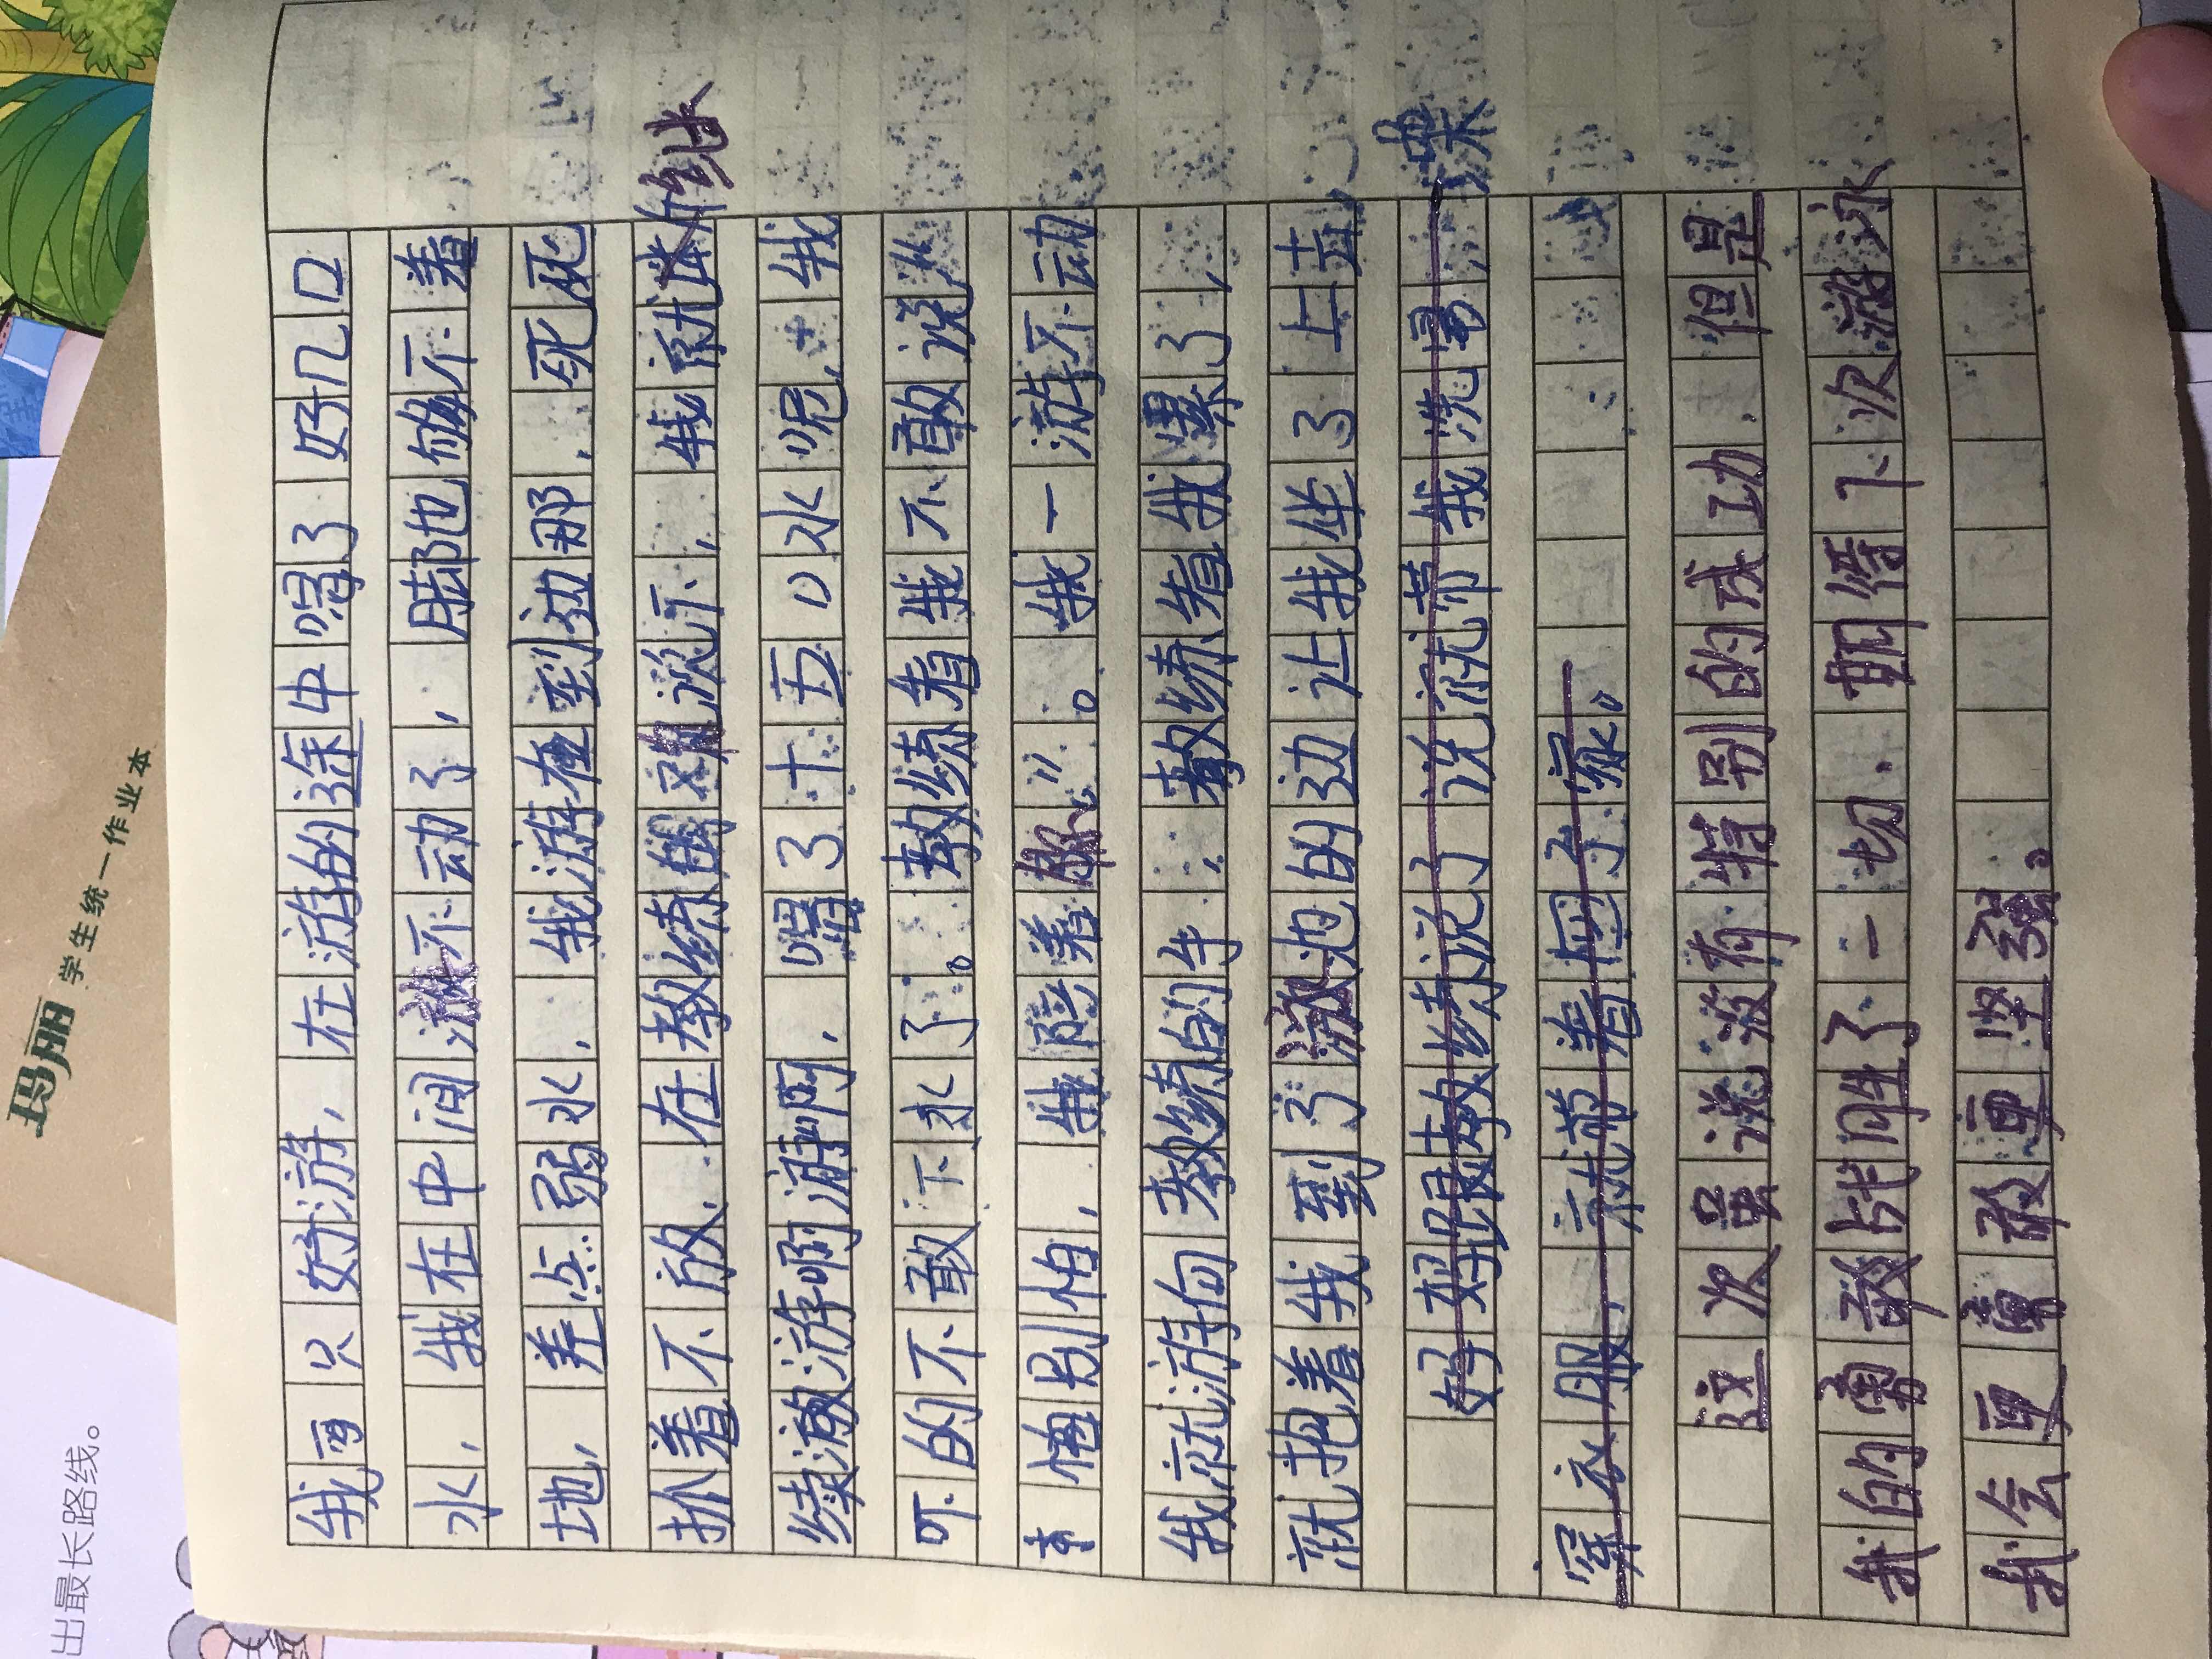 我再只好游，在游的途中喝了好几口
水，我在中间游不动了，脚也够不着
地，养点弱水，我游在到边那，死死
扒着不放，在教练的劝说下，我就继
续游游啊游啊，喝了十五口水呢，我
吓的不敢下水了。教练看我不敢说
怕别怕，我陪着你”。我一游不动
我就游向教练的手，教练看我累了，
就抱着我到了池的边让我坐了上去，
妈妈跟教练说了说就带我洗澡，
穿衣服，就带着回了家。
这次虽说没有特别的成功，但是
我的勇敢战胜了一切，期待下次游泳
我会更勇敢更坚强。
玛丽 学生统一作业本
出最长路线。